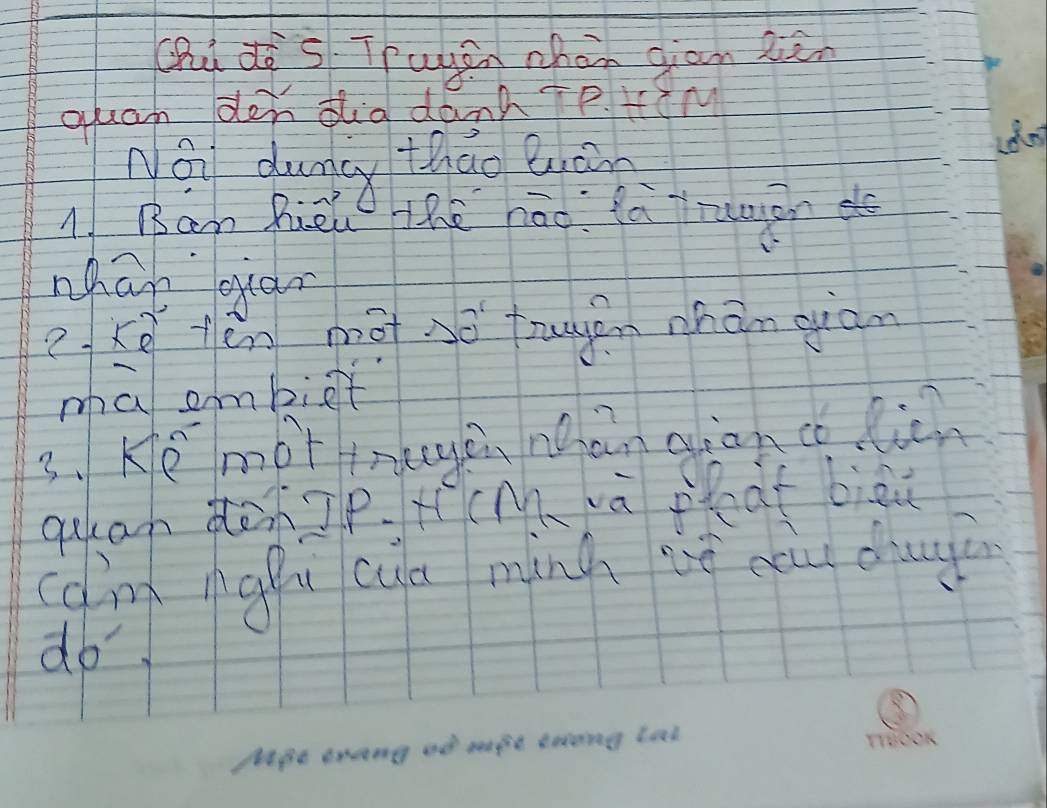 Chủ đề 5. Truyện nhân gian liên
quan đến địa danh TP. HCM
Nội dung thảo luận
1. Bạn hiểu thế nào là truyện
nhân gian
2. Kể tên một số truyện nhân gian
mà em biết
3. Kể một truyện nhân gian có liên
quan đến TP. HCM và phát biểu
cảm nghĩ của mình về câu chuyện
đó.
Một trang vở một tương lai
TTBOOK